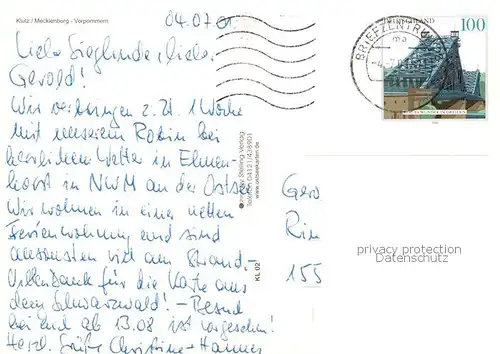 Klütz / Mecklenburg - Vorpommern
04.07.01
Liebe Sieglinde, lieber
Gerold!
Wir verbringen z. Zt. 1 Woche
mit unserem Robin bei
herrlichem Wetter in Elmen-
horst in NWM an der Ostsee.
Wir wohnen in einer netten
Ferienwohnung und sind
ansonsten viel am Strand. -
Vielen Dank für die Karte aus
dem Schwarzwald! - Besuch
bei euch ab 13.08 ist vorgesehen!
Herzl. Grüße Christine + Hannes
Stelling Verlag
www.ostseekarten.de
KL 02
BRIEFZENTRUM
DEUTSCHLAND
100
Gero
Rin
155
privacy protection
Datenschutz